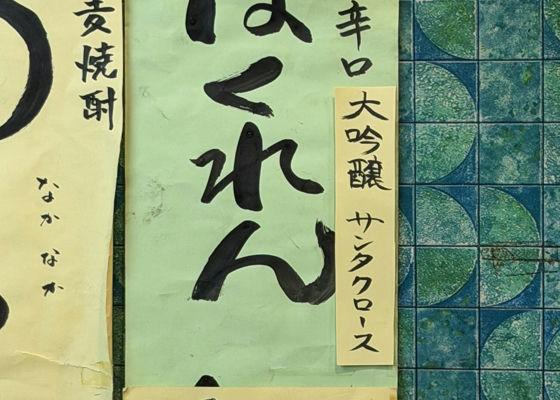 辛口
大吟醸 サンタクロース
はくれん
麦焼酎
なかなか